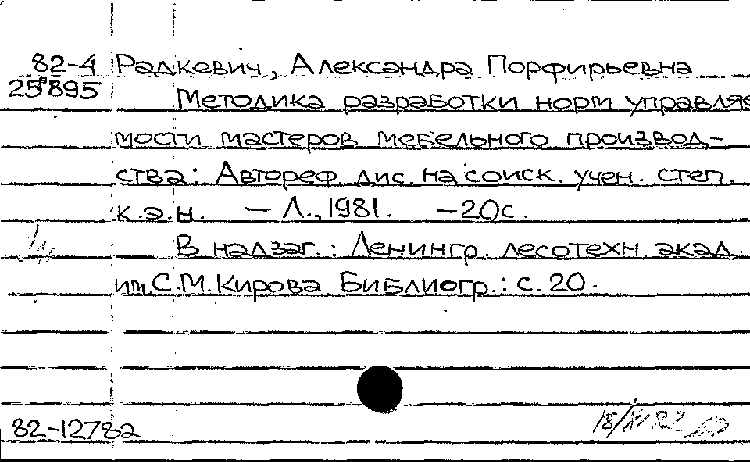 82-4 Радкевич, Александра Порфирьевна
25895 Методика разработки норм управляе
мости мастеров мебельного производ-
ства: Автореф. дис. на соиск. учен. степ.
к.э.н. – Л., 1981. – 20с.
В надзаг.: Ленингр. лесотехн. акад.
им. С.М. Кирова Библиогр.: с. 20.
82-12782